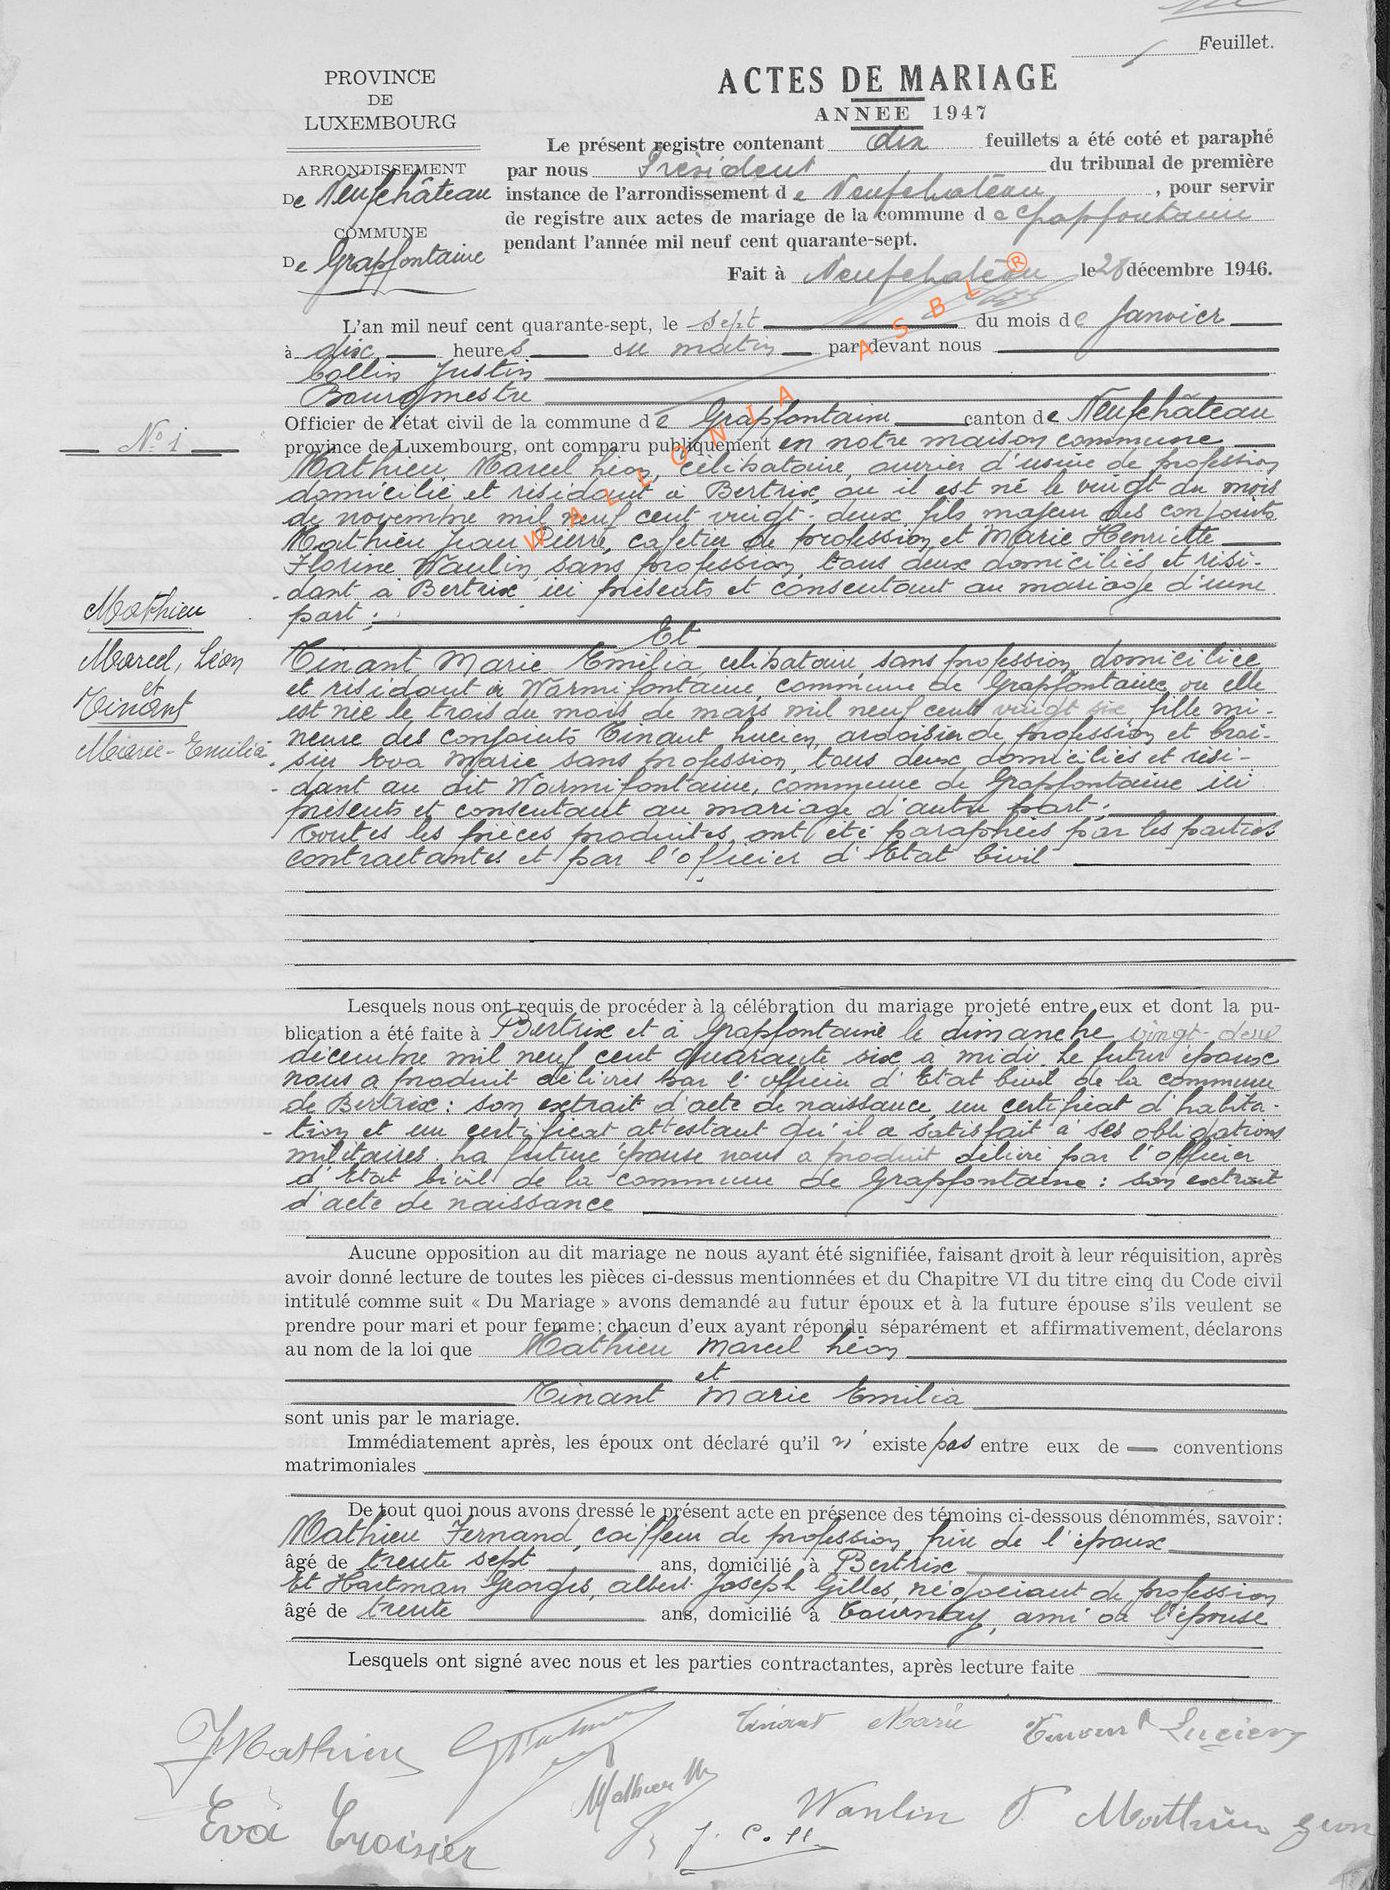 1 Feuillet.
PROVINCE
DE
LUXEMBOURG
ARRONDISSEMENT
De Neufchâteau
COMMUNE
De Grapfontaine
ACTES DE MARIAGE
ANNEE 1947
Le présent registre contenant dix feuillets a été coté et paraphé
par nous Président du tribunal de première
instance de l'arrondissement de Neufchateau, pour servir
de registre aux actes de mariage de la commune de Grapfontaine
pendant l'année mil neuf cent quarante-sept.
Fait à Neufchateau le 28 décembre 1946.
WALLONIA ASBL ®
L'an mil neuf cent quarante-sept, le sept du mois de Janvier
à dix heures du matin par devant nous
Collin Justin
Bourgmestre
Officier de l'état civil de la commune de Grapfontaine canton de Neufchâteau
N° 1
province de Luxembourg, ont comparu publiquement en notre maison commune
Mathieu, Marcel Léon, célibataire, ouvrier d'usine de profession
domicilié et résidant à Bertrix, où il est né le vingt du mois
de novembre mil neuf cent vingt-deux fils majeur des conjoints
Mathieu Jean Pierre, cafetier de profession et Marie Henriette
Florine Wanlin, sans profession, tous deux domiciliés et rési-
-dant à Bertrix, ici présents et consentant au mariage d'une
part;
Et
Mathieu
Marcel, Léon
et
Tinant
Marie-Emilia
Tinant Marie Emilia célibataire, sans profession, domiciliée
et résidant à Warmifontaine, commune de Grapfontaine, où elle
est née le trois du mois de mars mil neuf cent vingt six, fille mi-
neure des conjoints Tinant Lucien, ardoisier de profession et Croi-
sier Eva Marie sans profession, tous deux domiciliés et rési-
-dant au dit Warmifontaine, commune de Grapfontaine ici
présents et consentant au mariage d'autre part;
Toutes les pièces produites, ont été paraphées par les parties
contractantes et par l'officier d'Etat Civil
Lesquels nous ont requis de procéder à la célébration du mariage projeté entre eux et dont la pu-
blication a été faite à Bertrix et à Grapfontaine le dimanche vingt-deux
décembre mil neuf cent quarante six à midi. Le futur époux
nous a produit délivrés par l'officier d'Etat Civil de la commune
de Bertrix: son extrait d'acte de naissance, un certificat d'habita-
-tion et un certificat attestant qu'il a satisfait à ses obligations
militaires. La future épouse nous a produit délivré par l'officier
d'Etat Civil de la commune de Grapfontaine: son extrait
d'acte de naissance
Aucune opposition au dit mariage ne nous ayant été signifiée, faisant droit à leur réquisition, après
avoir donné lecture de toutes les pièces ci-dessus mentionnées et du Chapitre VI du titre cinq du Code civil
intitulé comme suit « Du Mariage » avons demandé au futur époux et à la future épouse s'ils veulent se
prendre pour mari et pour femme; chacun d'eux ayant répondu séparément et affirmativement, déclarons
au nom de la loi que Mathieu Marcel Léon
et
Tinant Marie Emilia
sont unis par le mariage.
Immédiatement après, les époux ont déclaré qu'il n'existe pas entre eux de conventions
matrimoniales
De tout quoi nous avons dressé le présent acte en présence des témoins ci-dessous dénommés, savoir:
Mathieu Fernand, coiffeur de profession, frère de l'époux
âgé de trente sept ans, domicilié à Bertrix
Et Hartman Georges, Albert Joseph Gilles, négociant de profession
âgé de trente ans, domicilié à Tournay, ami de l'épouse
Lesquels ont signé avec nous et les parties contractantes, après lecture faite
Mathieu
Tinant Marie
Tinant Lucien
Mathieu M
Eva Croisier
Wanlin F
Mathieu Jean
J. Coll